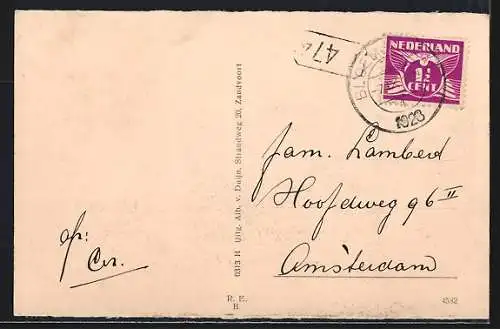 474
NEDERLAND
1½
CENT
1928
Fam. Lambert
Hoofdweg 96 II
Amsterdam
afz:
Cor.
6313 H Uitg. Alb. v. Duijn, Strandweg 20, Zandvoort
R. E.
H.
4582